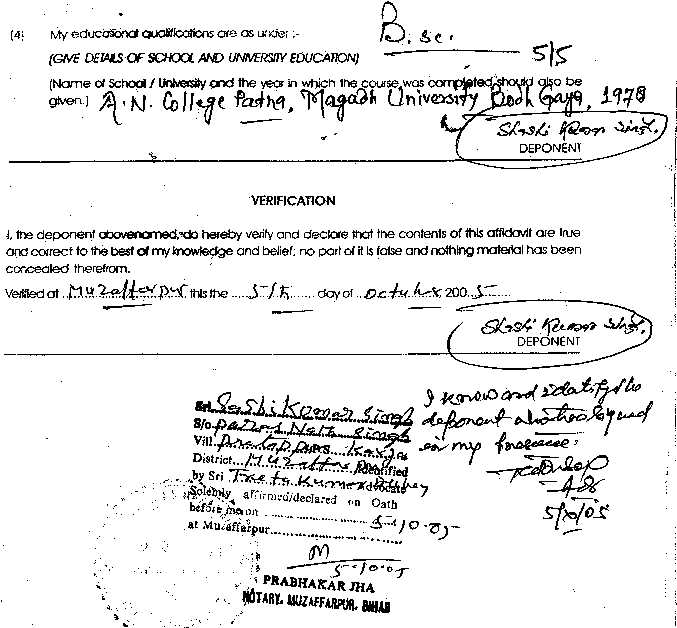 (4) My educational qualifications are as under :- B.sc.
(GIVE DETAILS OF SCHOOL AND UNIVERSITY EDUCATION) 5/5
(Name of School / University and the year in which the course was completed should also be
given.) A.N. College Patna, Magadh University Bodh Gaya, 1978
Shashi Kumar Singh.
DEPONENT
VERIFICATION
I, the deponent abovenamed, do hereby verify and declare that the contents of this affidavit are true
and correct to the best of my knowledge and belief; no part of it is false and nothing material has been
concealed therefrom.
Verified at Muzaffarpur this the 5th day of October 2005
Shashi Kumar Singh.
DEPONENT
I know and identify the
deponent who has signed
in my presence.
5/10/05
Sri Sashi Kumar Singh
S/o Nath Singh
Vill.
District Muzaffarpur Identified
by Sri Kumar Advocate
Solemly affirmed/declared on Oath
before me on 5-10-05
at Muzaffarpur
5-10-05
PRABHAKAR JHA
NOTARY, MUZAFFARPUR, BIHAR